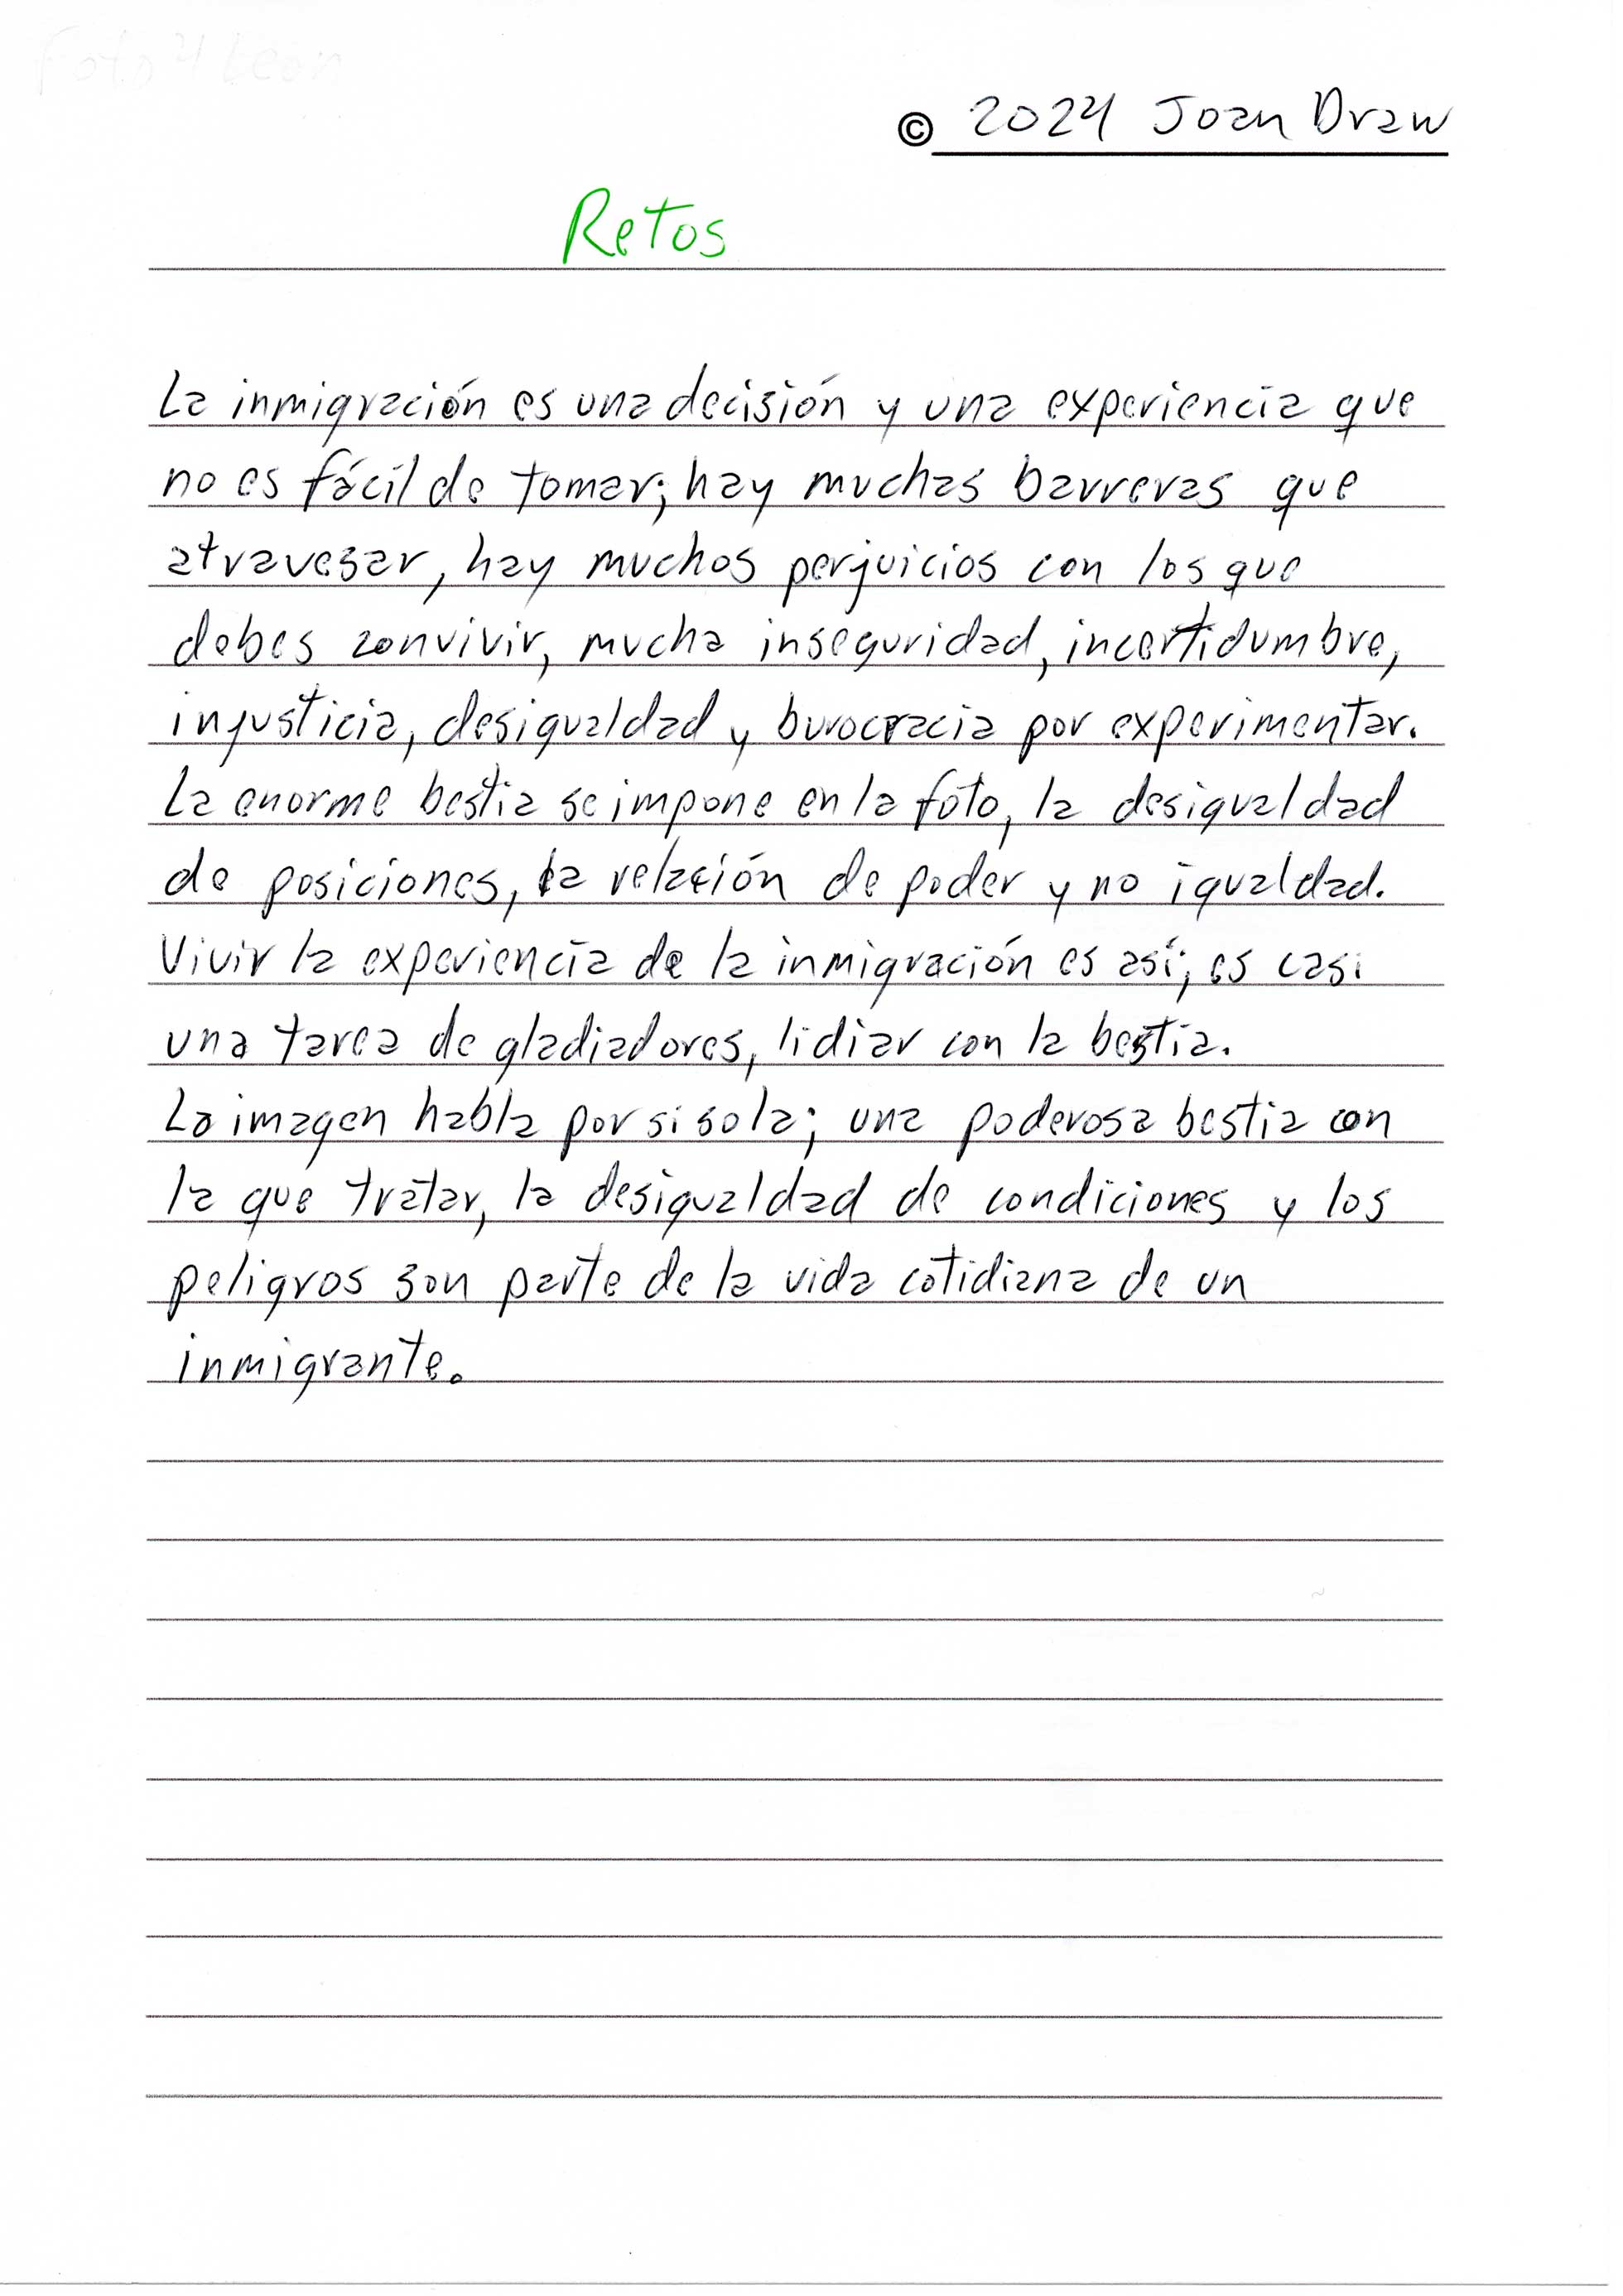 Foto 4 León
© 2024 Joan Draw
Retos
La inmigración es una decisión y una experiencia que
no es fácil de tomar; hay muchas barreras que
atravesar, hay muchos perjuicios con los que
debes convivir, mucha inseguridad, incertidumbre,
injusticia, desigualdad y burocracia por experimentar.
La enorme bestia se impone en la foto, la desigualdad
de posiciones, la relación de poder y no igualdad.
Vivir la experiencia de la inmigración es así; es casi
una tarea de gladiadores, lidiar con la bestia.
La imagen habla por si sola; una poderosa bestia con
la que tratar, la desigualdad de condiciones y los
peligros son parte de la vida cotidiana de un
inmigrante.